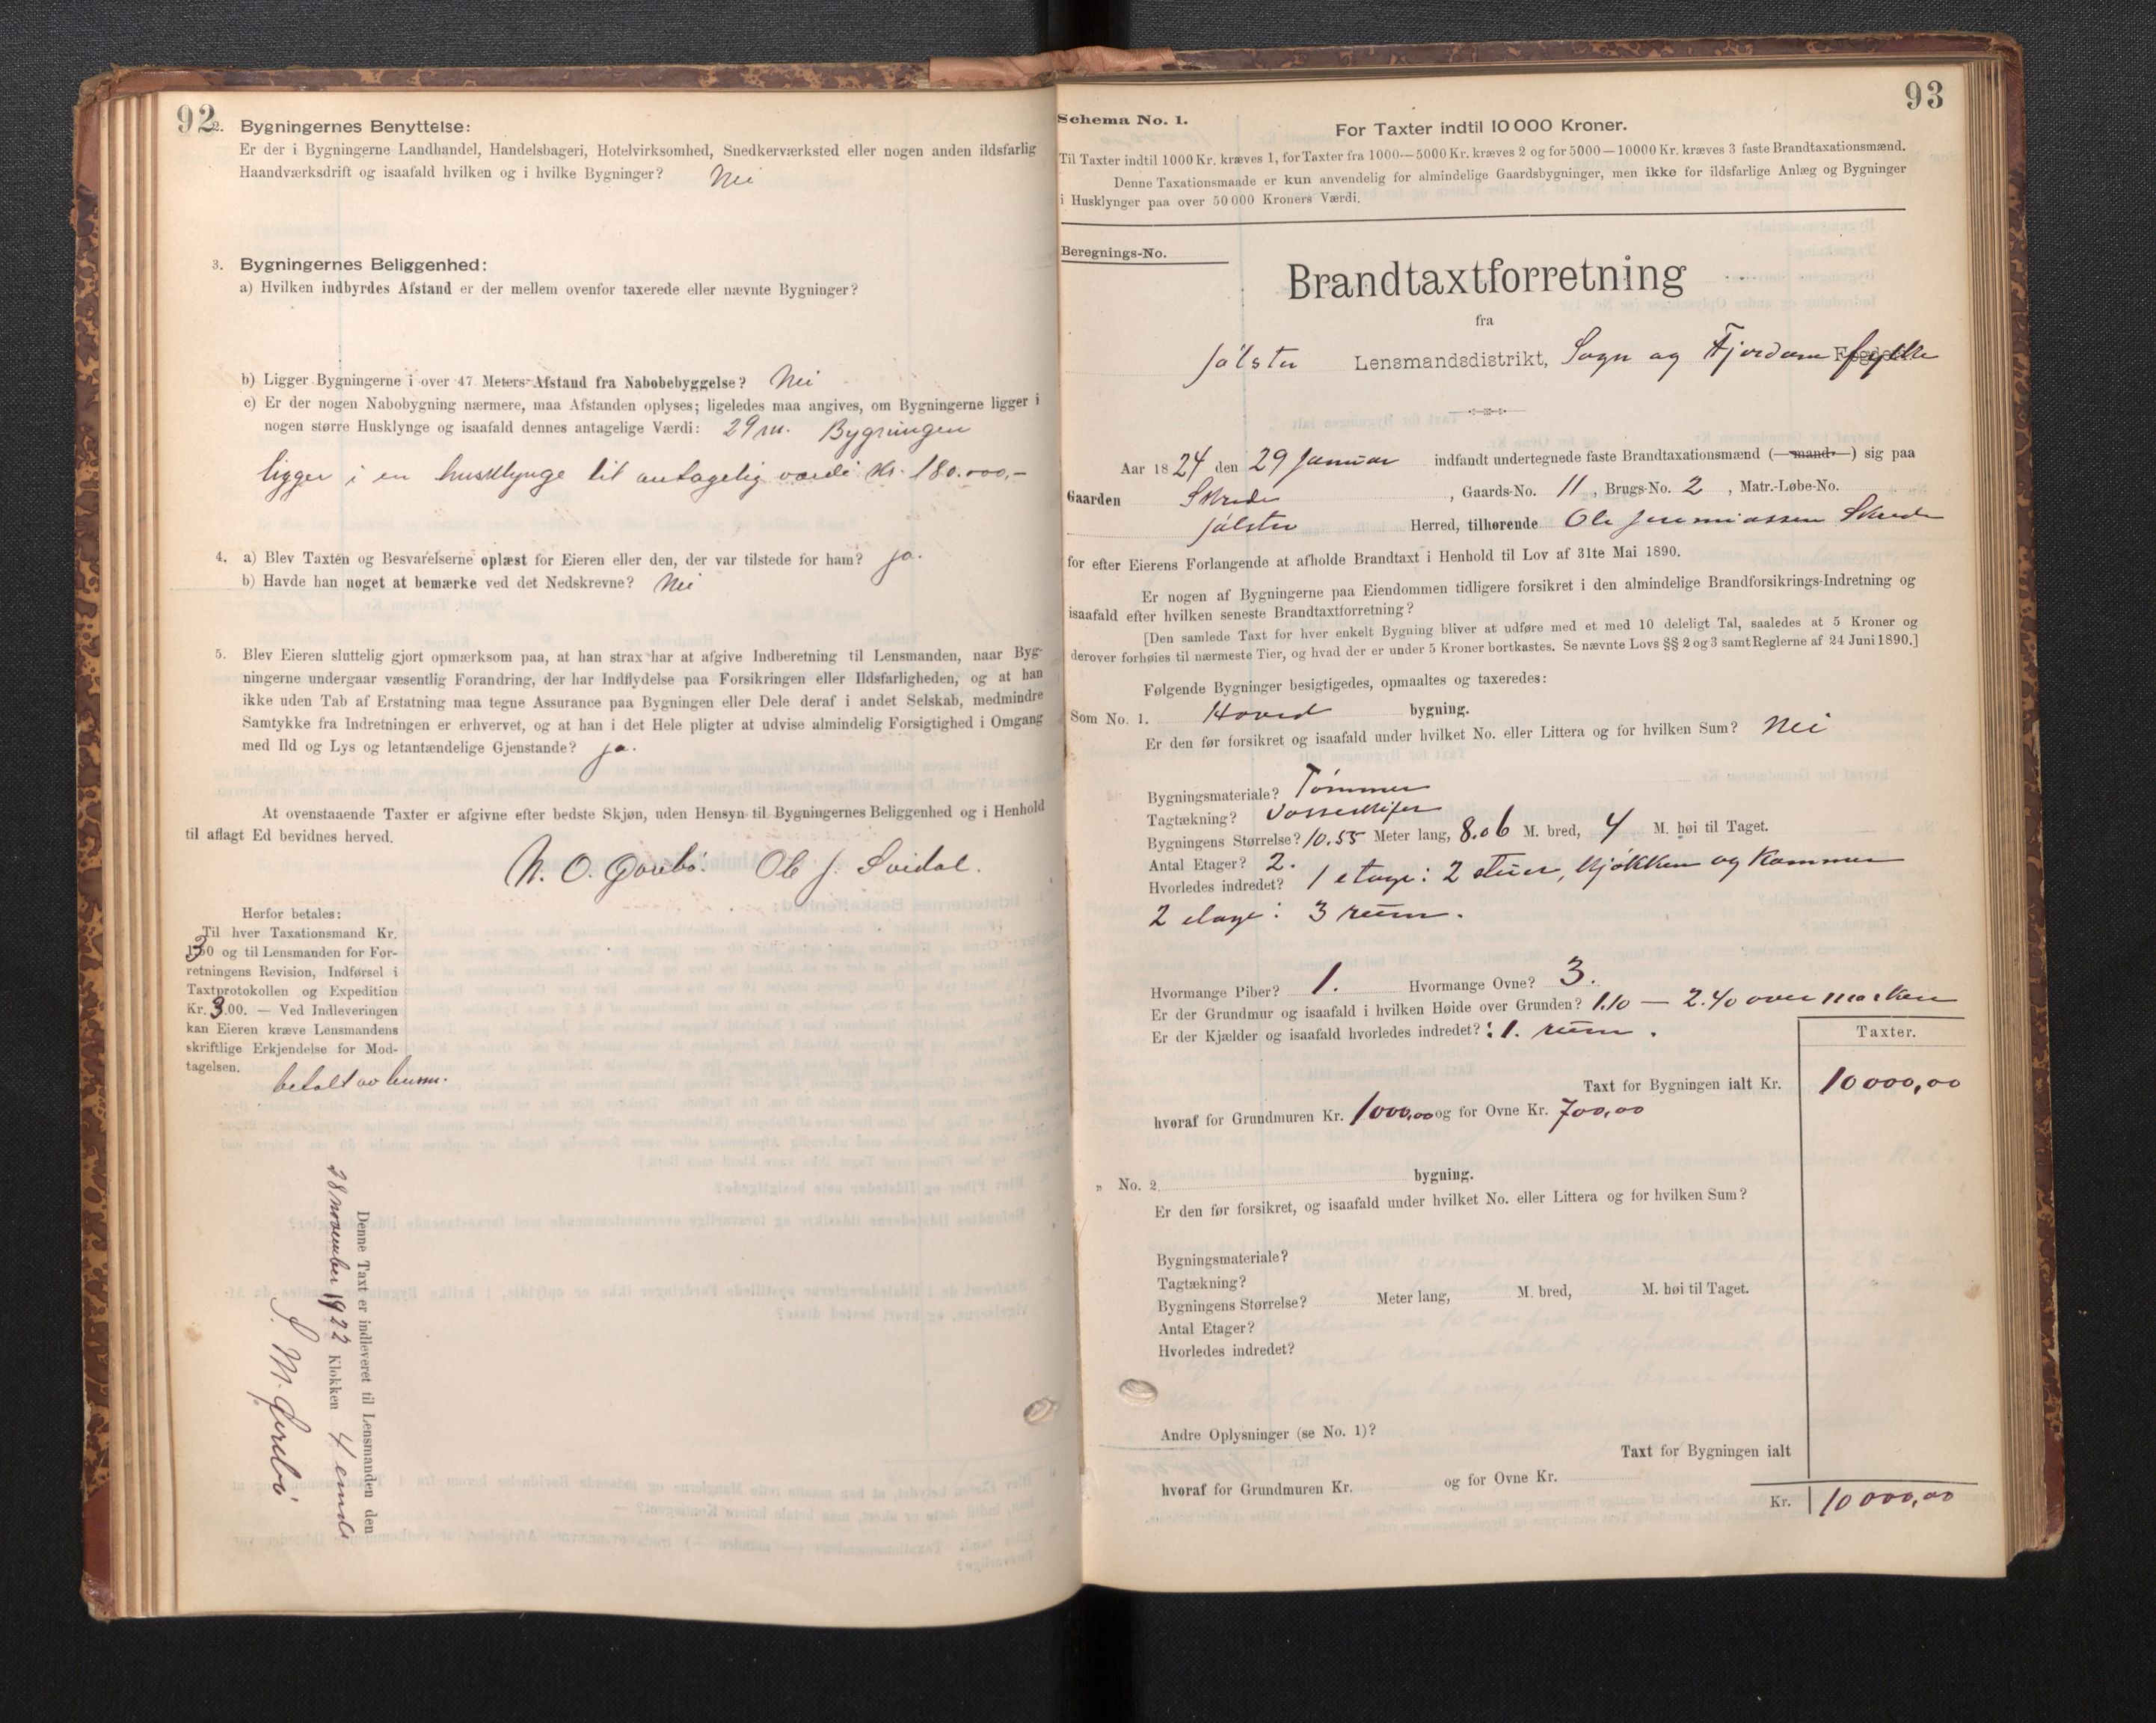 92
2. Bygningernes Benyttelse:
Er der i Bygningerne Landhandel, Handelsbageri, Hotelvirksomhed, Snedkerværksted eller nogen anden ildsfarlig
Haandværksdrift og isaafald hvilken og i hvilke Bygninger? Nei
3. Bygningernes Beliggenhed:
a) Hvilken indbyrdes Afstand er der mellem ovenfor taxerede eller nævnte Bygninger?
b) Ligger Bygningerne i over 47 Meters Afstand fra Nabobebyggelse? Nei
c) Er der nogen Nabobygning nærmere, maa Afstanden oplyses; ligeledes maa angives, om Bygningerne ligger i
nogen større Husklynge og isaafald dennes antagelige Værdi: 29 m. Bygningen
ligger i en husklynge til antagelig værdi kr. 180.000,-
4. a) Blev Taxten og Besvarelserne oplæst for Eieren eller den, der var tilstede for ham? ja.
b) Havde han noget at bemærke ved det Nedskrevne? Nei
5. Blev Eieren sluttelig gjort opmærksom paa, at han strax har at afgive Indberetning til Lensmanden, naar Byg-
ningerne undergaar væsentlig Forandring, der har Indflydelse paa Forsikringen eller Ildsfarligheden, og at han
ikke uden Tab af Erstatning maa tegne Assurance paa Bygningen eller Dele deraf i andet Selskab, medmindre
Samtykke fra Indretningen er erhvervet, og at han i det Hele pligter at udvise almindelig Forsigtighed i Omgang
med Ild og Lys og letantændelige Gjenstande? ja.
At ovenstaaende Taxter er afgivne efter bedste Skjøn, uden Hensyn til Bygningernes Beliggenhed og i Henhold
til aflagt Ed bevidnes herved.
N. O. Ole J. Svidal.
Herfor betales:
Til hver Taxationsmand Kr.
3 og til Lensmanden for For-
retningens Revision, Indførsel i
Taxtprotokollen og Expedition
Kr. 3.00. — Ved Indleveringen
kan Eieren kræve Lensmandens
skriftlige Erkjendelse for Mod-
tagelsen.
betalt av
Denne Taxt er indleveret til Lensmanden den
28 november 1922 Klokken 4 emd
S. M.
93
Schema No. 1.
For Taxter indtil 10 000 Kroner.
Til Taxter indtil 1000 Kr. kræves 1, for Taxter fra 1000—5000 Kr. kræves 2 og for 5000—10000 Kr. kræves 3 faste Brandtaxationsmænd.
Denne Taxationsmaade er kun anvendelig for almindelige Gaardsbygninger, men ikke for ildsfarlige Anlæg og Bygninger
i Husklynger paa over 50 000 Kroners Værdi.
Beregnings-No.
Brandtaxtforretning
fra
Jølster Lensmandsdistrikt, Sogn og Fjordane fylke
Aar 1824 den 29 Januar indfandt undertegnede faste Brandtaxationsmænd (—mand—) sig paa
Gaarden Skrede, Gaards-No. 11, Brugs-No. 2, Matr.-Løbe-No.
Jølster Herred, tilhørende Ole Jeremiassen Skrede
for efter Eierens Forlangende at afholde Brandtaxt i Henhold til Lov af 31te Mai 1890.
Er nogen af Bygningerne paa Eiendommen tidligere forsikret i den almindelige Brandforsikrings-Indretning og
isaafald efter hvilken seneste Brandtaxtforretning?
[Den samlede Taxt for hver enkelt Bygning bliver at udføre med et med 10 deleligt Tal, saaledes at 5 Kroner og
derover forhøies til nærmeste Tier, og hvad der er under 5 Kroner bortkastes. Se nævnte Lovs §§ 2 og 3 samt Reglerne af 24 Juni 1890.]
Følgende Bygninger besigtigedes, opmaaltes og taxeredes:
Som No. 1. Hoved bygning.
Er den før forsikret og isaafald under hvilket No. eller Littera og for hvilken Sum? Nei
Bygningsmateriale? Tømmer
Tagtækning? Vosseskifer
Bygningens Størrelse? 10.55 Meter lang, 8.06 M. bred, 4 M. høi til Taget.
Antal Etager? 2.
Hvorledes indredet? 1 etage: 2 stuer, kjøkken og kammer
2 etage: 3 rum.
Hvormange Piber? 1. Hvormange Ovne? 3.
Er der Grundmur og isaafald i hvilken Høide over Grunden? 1.10 — 2.40 over marken
Er der Kjælder og isaafald hvorledes indredet? : 1. rum.
Taxter.
Taxt for Bygningen ialt Kr. 10000,00
hvoraf for Grundmuren Kr. 1000,00 og for Ovne Kr. 700,00
„ No. 2 bygning.
Er den før forsikret, og isaafald under hvilket No. eller Littera og for hvilken Sum?
Bygningsmateriale?
Tagtækning?
Bygningens Størrelse? Meter lang, M. bred, M. høi til Taget.
Antal Etager?
Hvorledes indredet?
Andre Oplysninger (se No. 1)?
Taxt for Bygningen ialt
hvoraf for Grundmuren Kr. og for Ovne Kr.
Kr. 10000,00